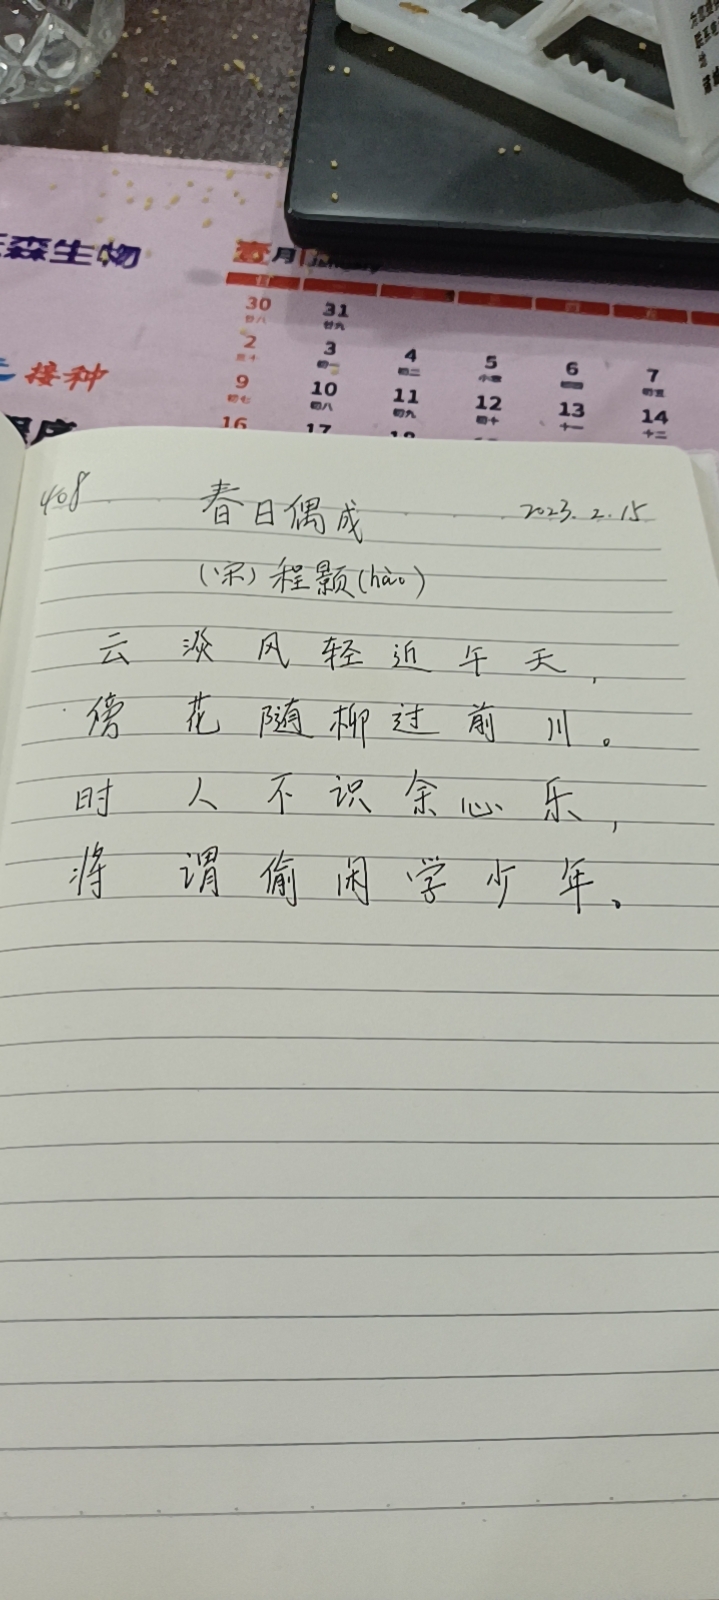 为
联系电
池
森生物
壹月 January
日 一 二 三 四 五
30 31
廿八 廿九
2 3 4 5 6 7
三十 初一 初二 小寒 初四 初五
接种
9 10 11 12 13 14
初七 初八 初九 初十 十一 十二
16 17 18
408 春日偶成 2023.2.15
(宋) 程颢(hào)
云淡风轻近午天,
傍花随柳过前川。
时人不识余心乐,
将谓偷闲学少年。